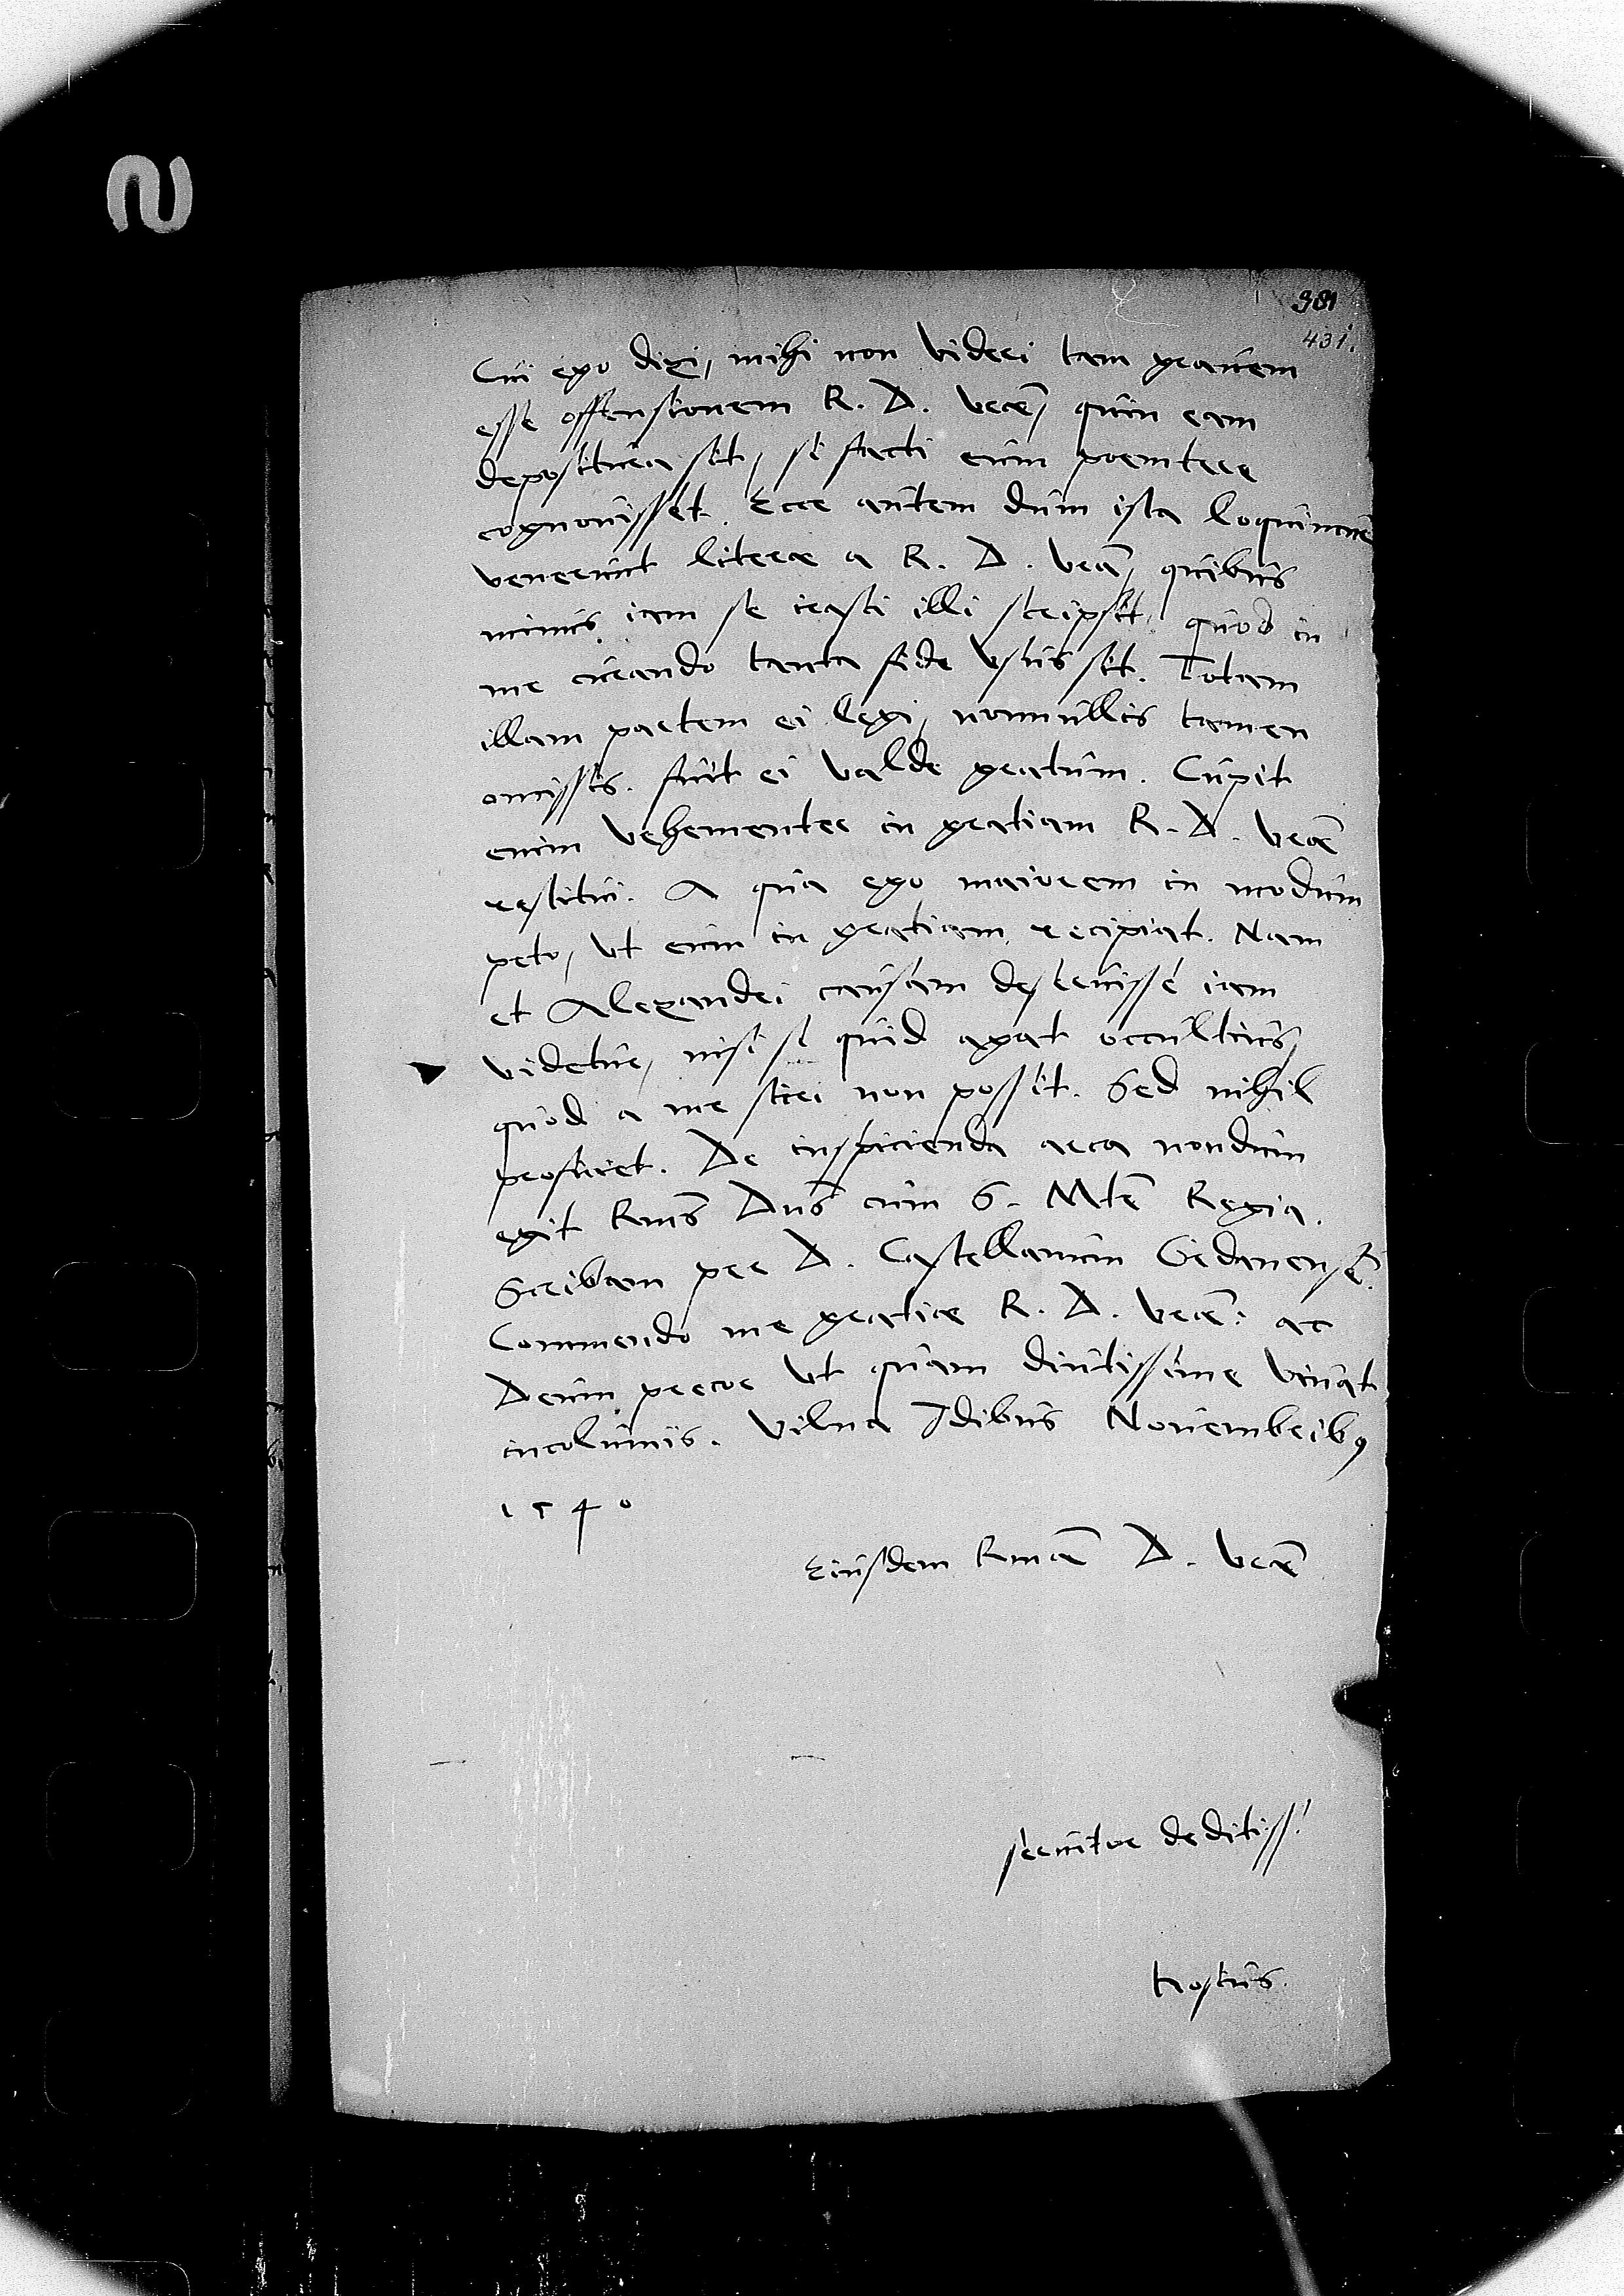 381
431.
Cui ego dixi, mihi non videri tam gravem
esse offensionem R. D. vrae, quin eam
depositura sit, si facti eum poenitere
cognovisset. Ecce autem dum ista loquimur
venerunt literae a R. D. vra, quibus
minus iam se irasci illi scripsit, quod in
me curando tanta fide usus sit. Totam
illam partem ei legi, nonnullis tamen
omissis. fuit ei valde gratum. Cupit
enim vehementer in gratiam R. D. vrae
restitui. A qua ego maiorem in modum
peto, ut eum in gratiam recipiat. Nam
et Alexandri causam deseruisse iam
videtur, nisi si quid agat occultius,
quod a me sciri non possit. Sed nihil
proficiet. De inspicienda arca nondum
egit Rmus Dnus cum S. Mte Regia.
Scribam per D. Castellanum Gedanensem.
Commendo me gratiae R. D. vrae: ac
Deum precor ut quam diutissime vivat
incolumis. Vilna Idibus Novembribus
1540
Eiusdem Rmae D. vrae
servitor deditiss.
Hosius.